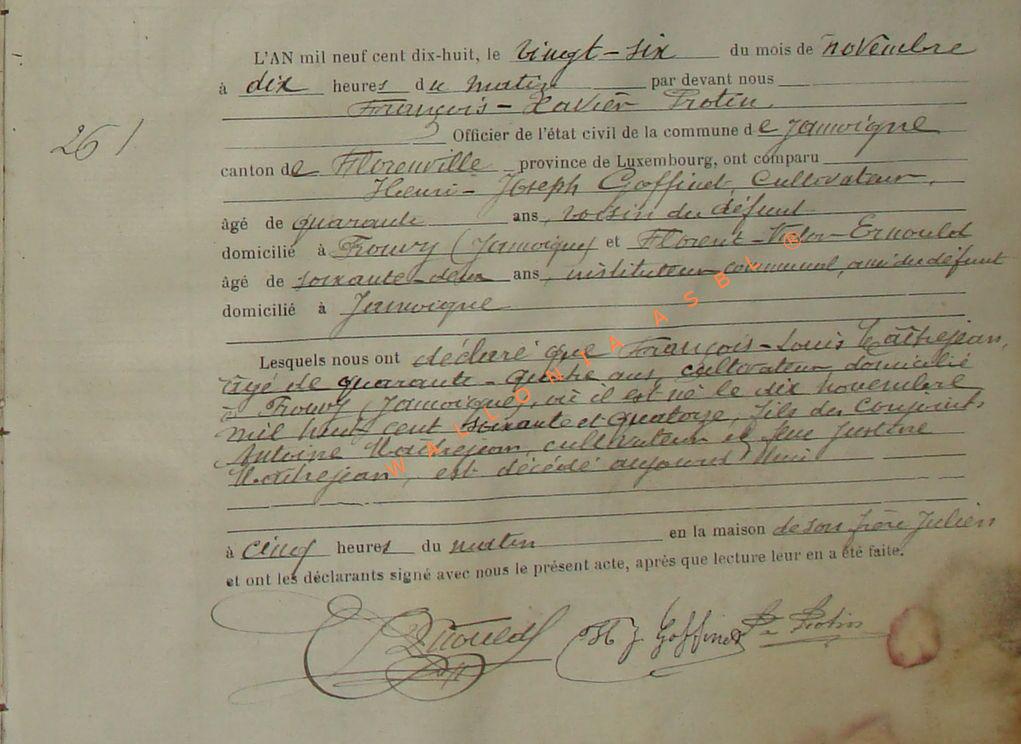 L'AN mil neuf cent dix-huit, le vingt-six du mois de novembre
à dix heures du matin par devant nous
François-Xavier Protin
Officier de l'état civil de la commune de Jamoigne
261
canton de Florenville province de Luxembourg, ont comparu
Henri-Joseph Goffinet, cultivateur,
âgé de quarante ans, voisin du défunt
domicilié à Prouvy (Jamoigne) et Florent-Victor-Ernould
âgé de soixante-deux ans, instituteur communal, ami du défunt
domicilié à Jamoigne
Lesquels nous ont déclaré que François-Louis Watrejean,
âgé de quarante-quatre ans, cultivateur, domicilié
à Prouvy (Jamoigne), où il est né le dix novembre
mil huit cent soixante et quatorze, fils des conjoints
Antoine Watrejean, cultivateur et feue Justine
Watrejean, est décédé aujourd'hui
à cinq heures du matin en la maison de son frère Julien
et ont les déclarants signé avec nous le présent acte, après que lecture leur en a été faite.
Ernould H J Goffinet Protin
WALLONIA ASBL ®